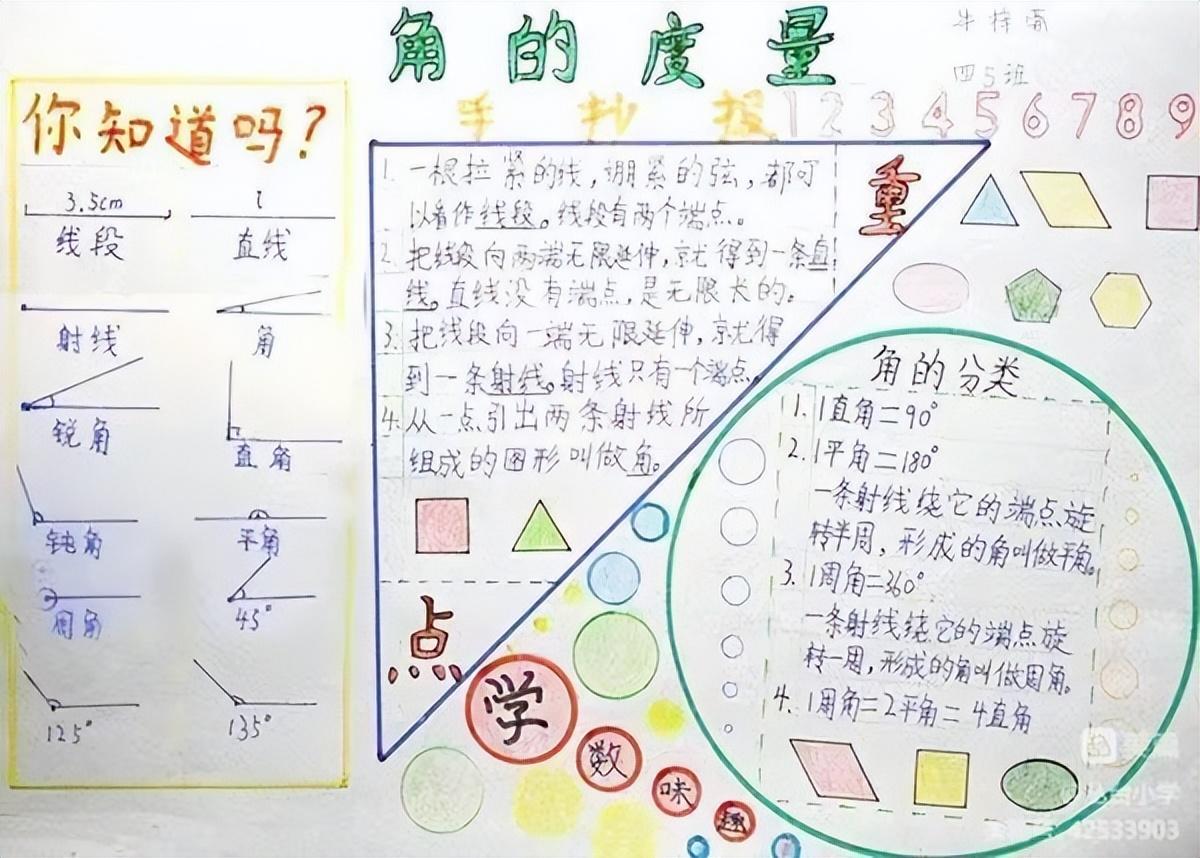 角的度量
牛梓
四5班
手抄报
1 2 3 4 5 6 7 8 9
你知道吗?
3.5cm
l
线段
直线
射线
角
锐角
直角
钝角
平角
周角
45°
125°
135°
重
1. 一根拉紧的线,绷紧的弦,都可
以看作线段。线段有两个端点。
2. 把线段向两端无限延伸,就得到一条直
线。直线没有端点,是无限长的。
3. 把线段向一端无限延伸,就得
到一条射线。射线只有一个端点。
4. 从一点引出两条射线所
组成的图形叫做角。
点
学
数
味
趣
角的分类
1. 1直角=90°
2. 1平角=180°
一条射线绕它的端点旋
转半周,形成的角叫做平角。
3. 1周角=360°
一条射线绕它的端点旋
转一周,形成的角叫做周角。
4. 1周角=2平角=4直角
台小学
42533903